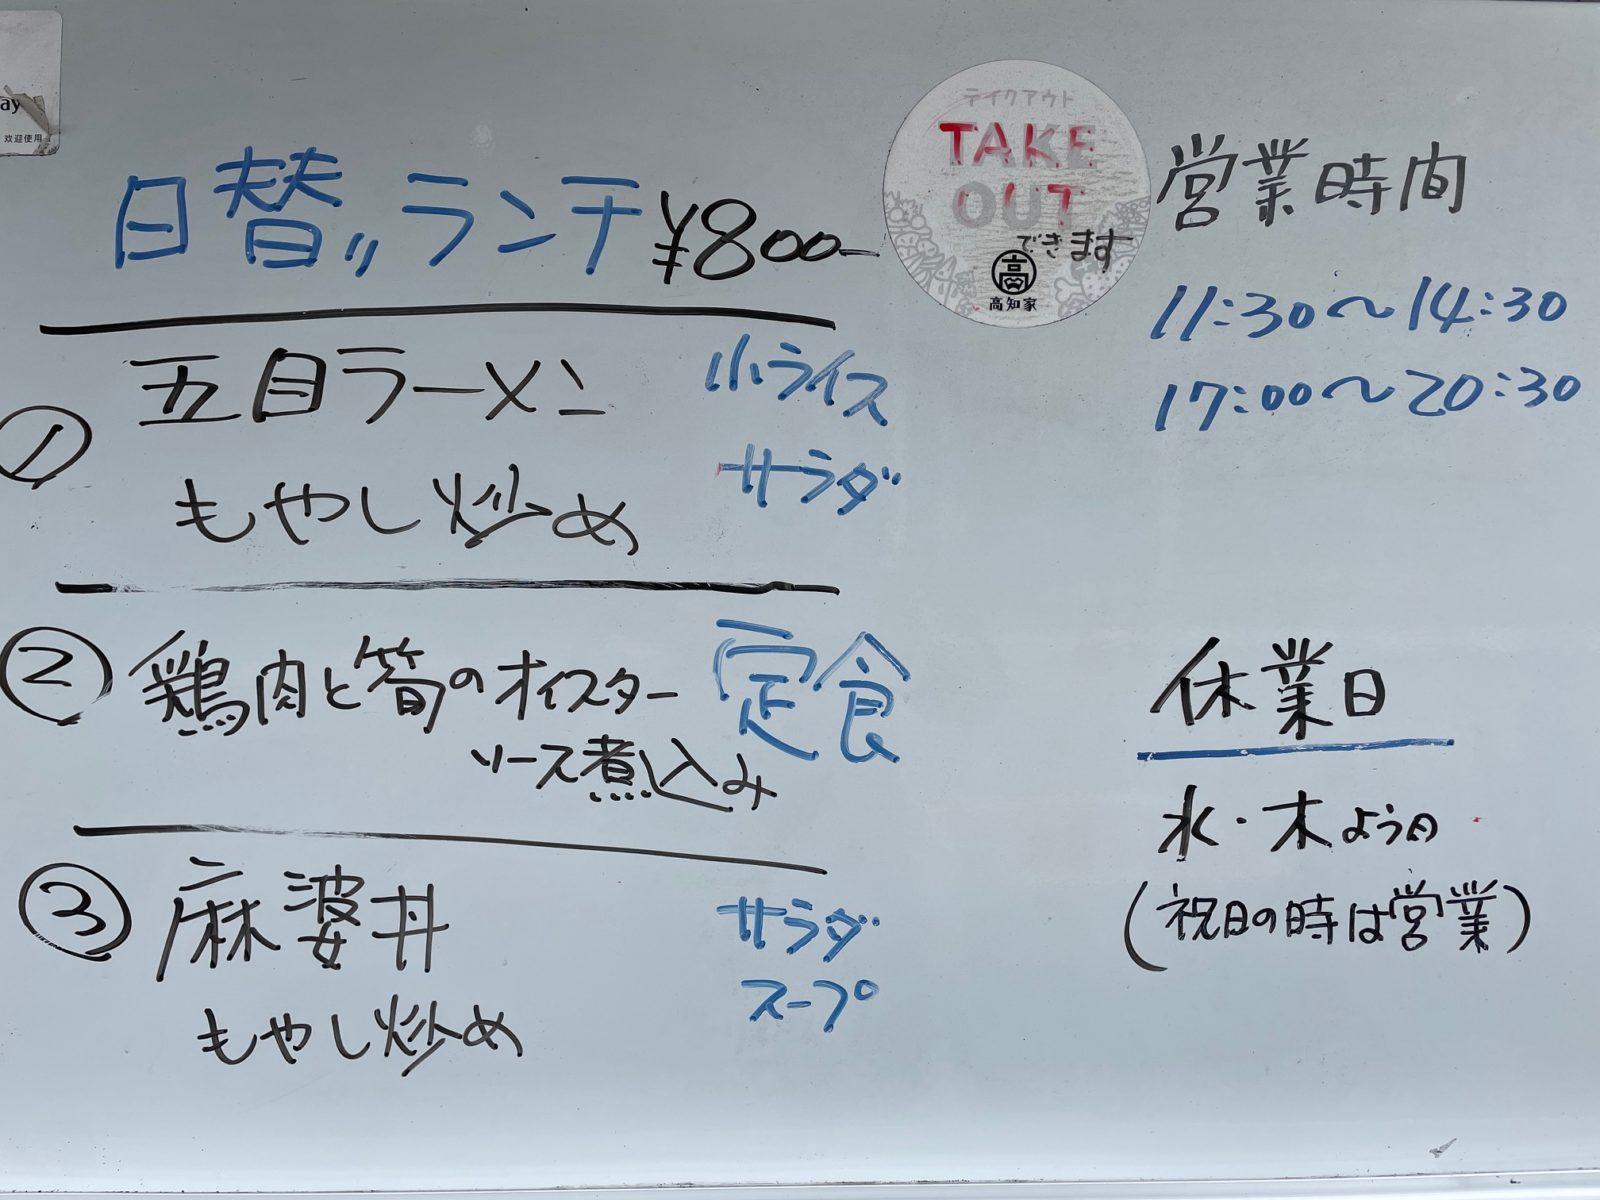 ay
欢迎使用
日替りランチ ¥800-
① 五目ラーメン 小ライス
もやし炒め サラダ
② 鶏肉と筍のオイスター 定食
ソース煮込み
③ 麻婆丼 サラダ
もやし炒め スープ
テイクアウト
TAKE
OUT
できます
高
高知家
営業時間
11:30〜14:30
17:00〜20:30
休業日
水・木よう日
(祝日の時は営業)